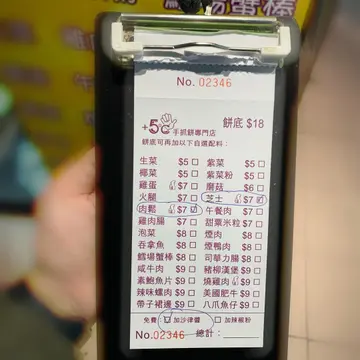 No. 02346
餅底 $18
+5℃ 手抓餅專門店
餅底可再加以下自選配料:
生菜 $5 紫菜 $5
椰菜 $5 紫菜粉 $5
雞蛋 $7 蘑菇 $6
火腿 $7 芝士 $7
肉鬆 $7 午餐肉 $7
雞肉腸 $7 甜粟米粒 $7
泡菜 $8 煙肉 $8
吞拿魚 $8 煙鴨肉 $8
鱈場蟹棒 $8 司華力腸 $8
咸牛肉 $9 豬柳漢堡 $9
素鮑魚片 $9 燒雞肉 $9
辣味螺肉 $9 美國肥牛 $9
帶子裙邊 $9 八爪魚仔 $9
免費: 加沙律醬 加辣椒粉
No. 02346 總計: